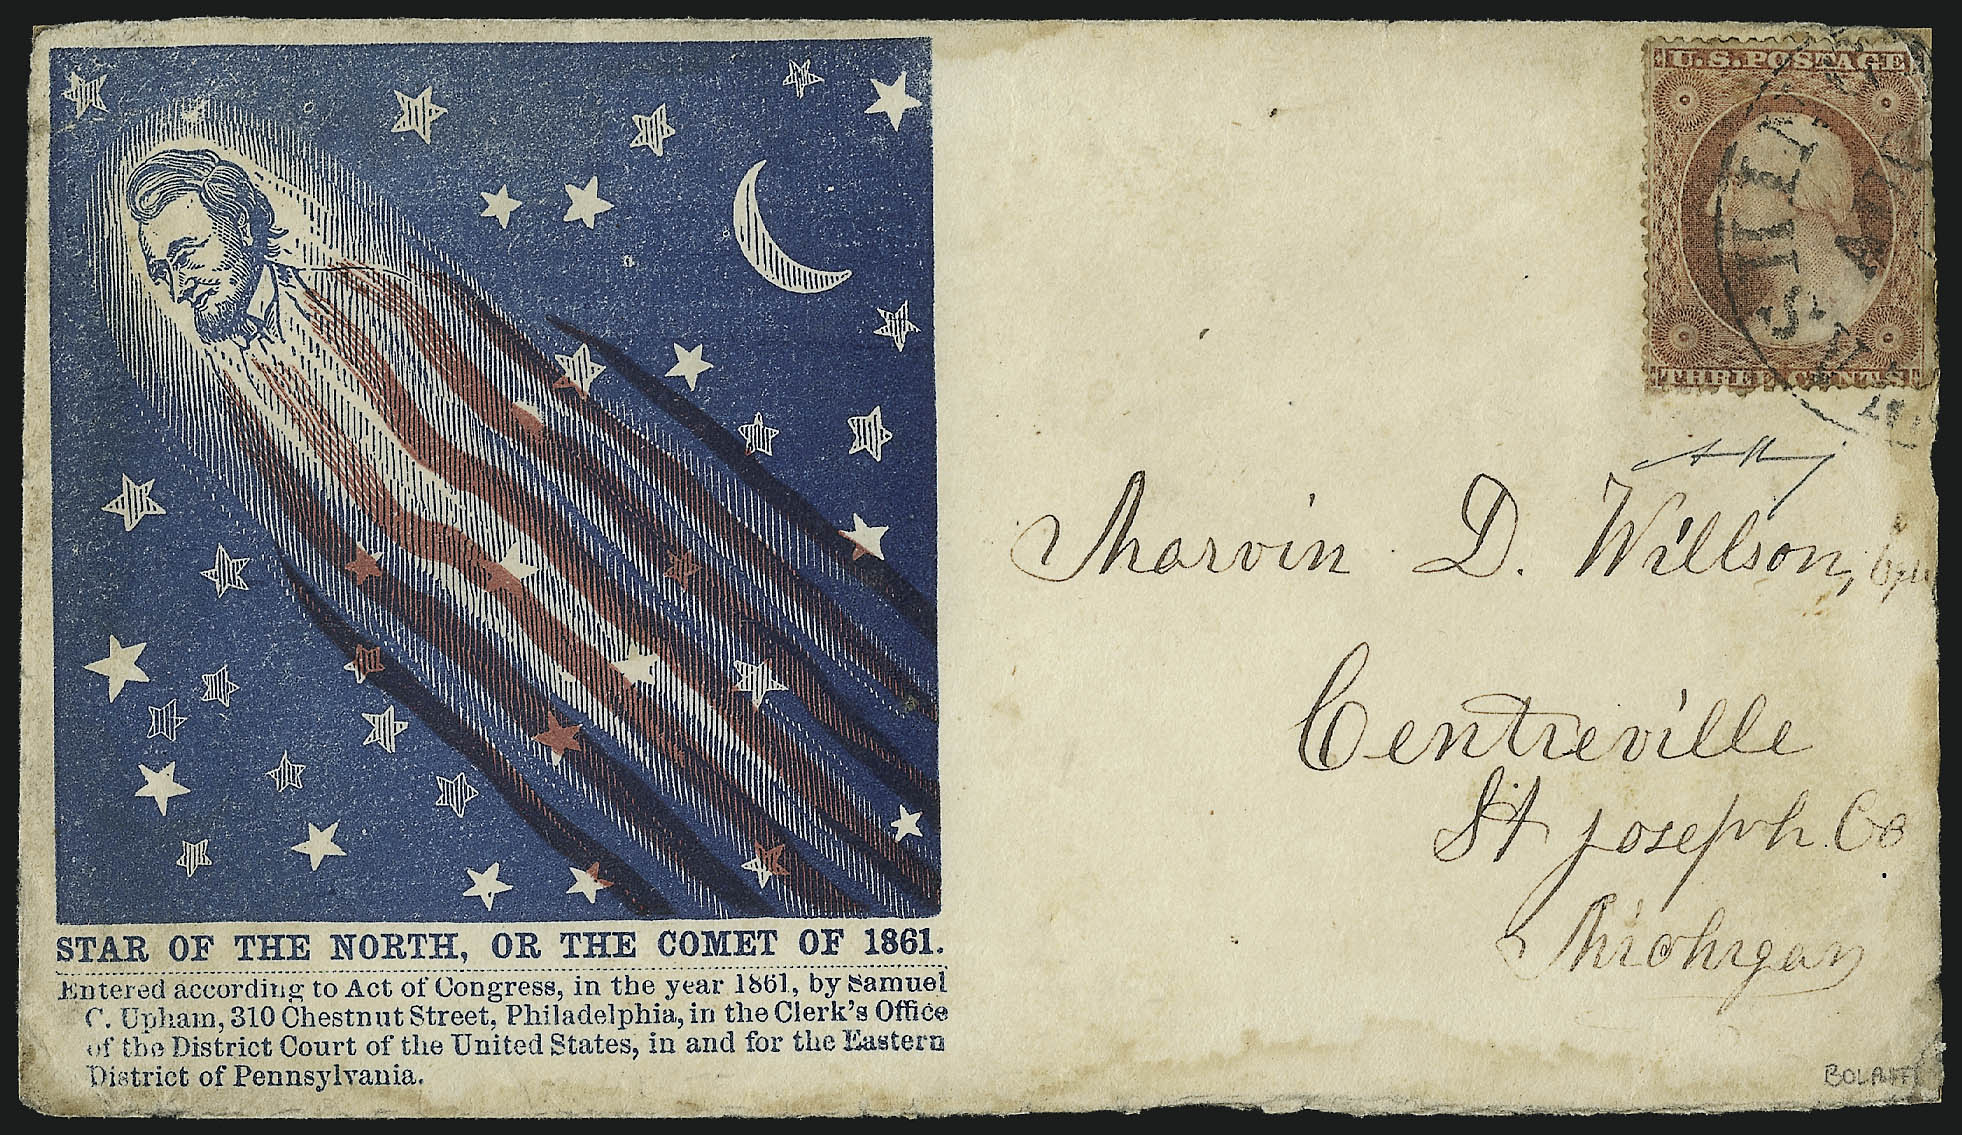 STAR OF THE NORTH, OR THE COMET OF 1861.
Entered according to Act of Congress, in the year 1861, by Samuel
C. Upham, 310 Chestnut Street, Philadelphia, in the Clerk's Office
of the District Court of the United States, in and for the Eastern
District of Pennsylvania.
U.S. POSTAGE
THREE CENTS
Marvin D. Willson,
Centreville
St Joseph Co
Michigan